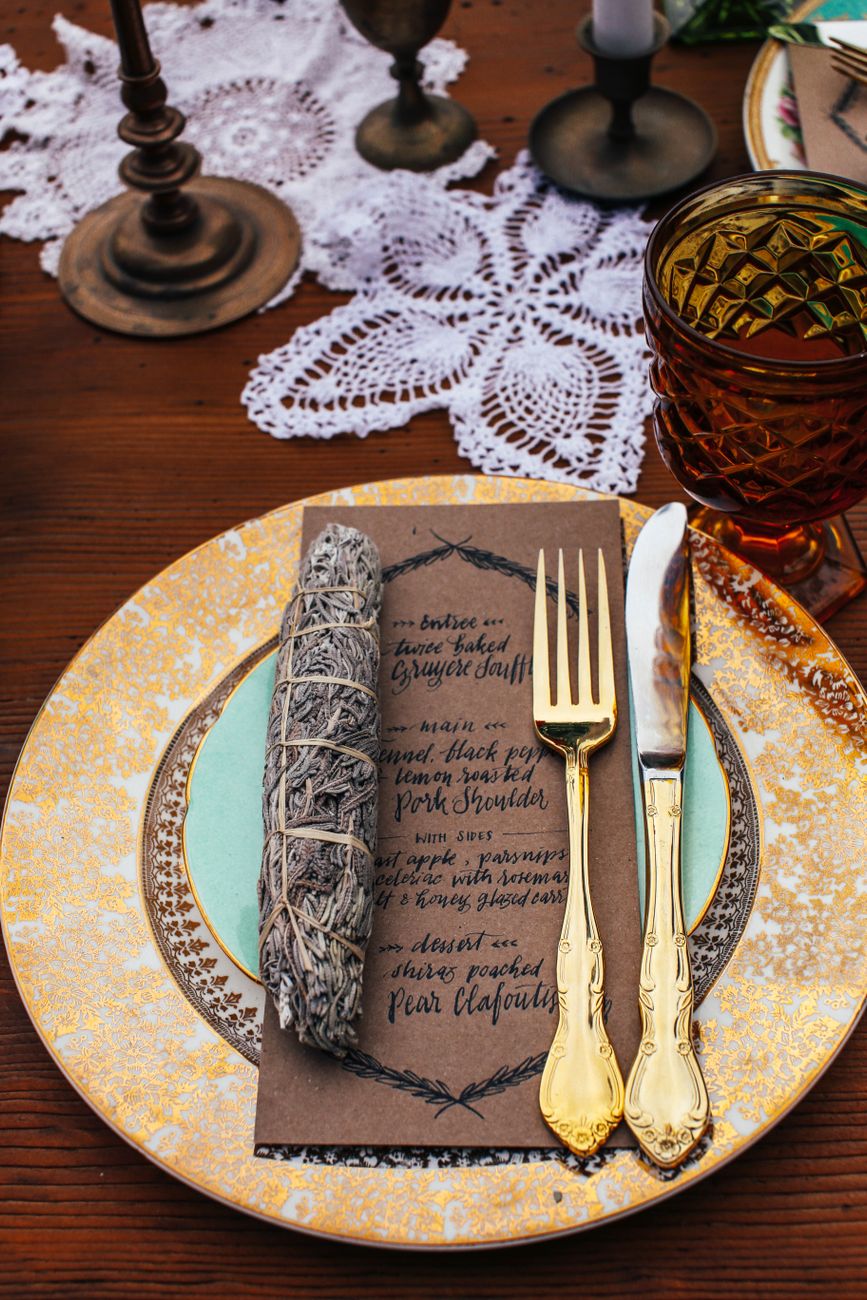 entree
twice baked
Gruyere Souffl
main
ennel, black pepp
lemon roasted
Pork Shoulder
WITH SIDES
ast apple, parsnips
celeriac with rosemar
lt & honey glazed carr
dessert
shiraz poached
Pear Clafoutis